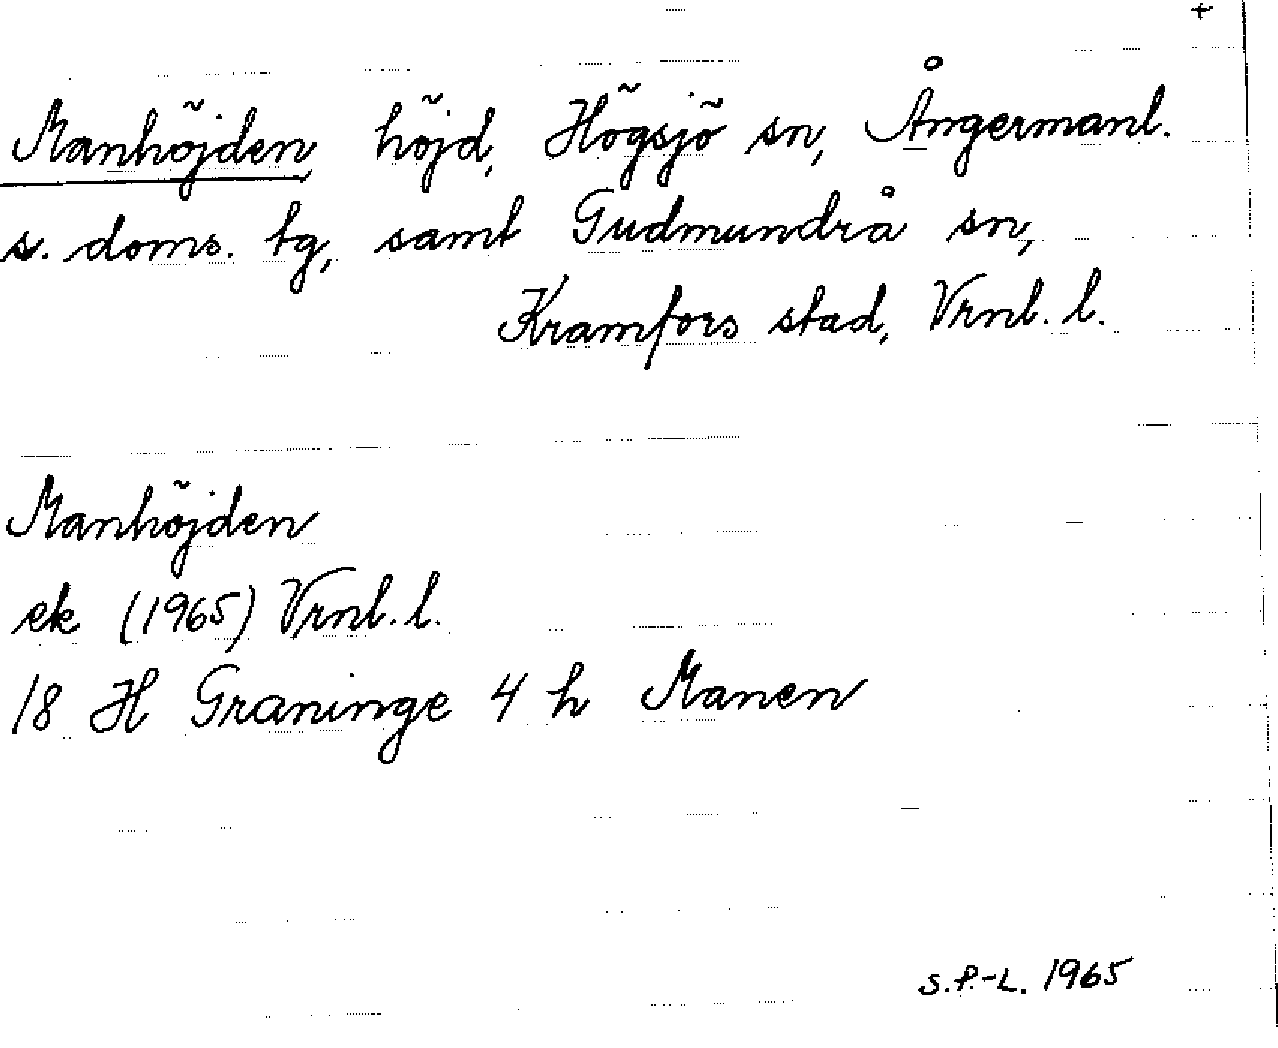 +
Manhöjden, höjd, Högsjö sn, Ångermanl.
s. doms. tg, samt Gudmundrå sn,
Kramfors stad, Vrnl. l.
Manhöjden
ek (1965) Vrnl. l.
18 H Graninge 4 h Manen
S.P.-L. 1965